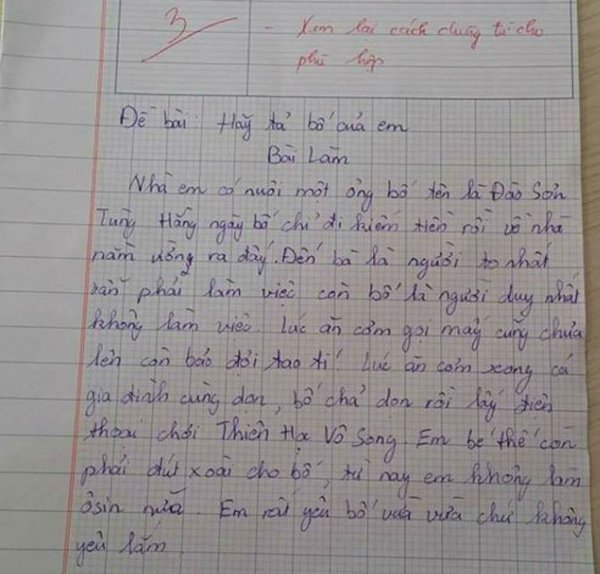 3
- Xem lại cách dùng từ cho
phù hợp
Đề bài: Hãy tả bố của em
Bài Làm
Nhà em có nuôi một ông bố tên là Đào Sơn
Tùng Hằng ngày bố chỉ đi kiếm tiền rồi về nhà
nằm ưỡng ra đấy. Đến bà là người to nhất
vẫn phải làm việc còn bố là người duy nhất
không làm việc. Lúc ăn cơm gọi mấy cũng chưa
lên còn bảo đợi tao tí! Lúc ăn cơm xong cả
gia đình cùng dọn, bố chả dọn rồi lấy điện
thoại chơi Thiên Hạ Vô Song. Em bé thế còn
phải đút xoài cho bố, từ nay em không làm
ôsin nữa. Em rất yêu bố vừa vừa chứ không
yêu lắm